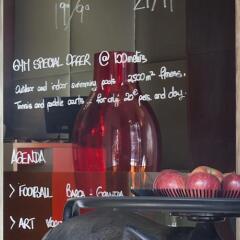 19/9ª
27/11
GYM SPECIAL OFFER @ 100 metres
Outdoor and indoor swimming pools 2500 m² fitness.
Tennis and paddle courts for only 20€ pers. and day.
AGENDA
> FOOTBALL BARÇA - GRANADA
> ART